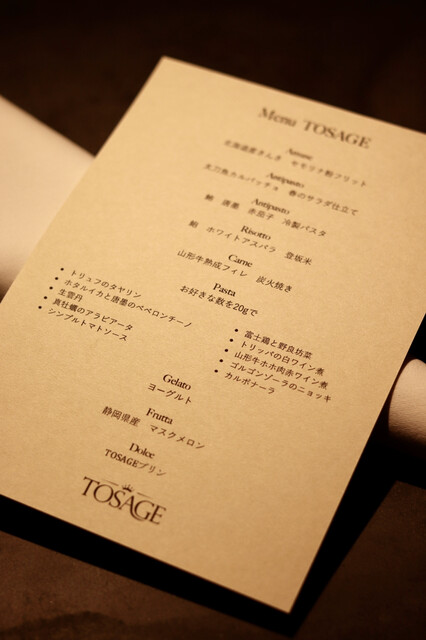 Menu TOSAGE
Amuse
北海道産きんき セモリナ粉フリット
Antipasto
太刀魚カルパッチョ 春のサラダ仕立て
Antipasto
鮪 唐墨 赤茄子 冷製パスタ
Risotto
鮑 ホワイトアスパラ 登坂米
Carne
山形牛熟成フィレ 炭火焼き
Pasta
お好きな数を20gで
• トリュフのタヤリン
• ホタルイカと唐墨のペペロンチーノ
• 生雲丹
• 真牡蠣のアラビアータ
• シンプルトマトソース
• 富士鶏と野良坊菜
• トリッパの白ワイン煮
• 山形牛ホホ肉赤ワイン煮
• ゴルゴンゾーラのニョッキ
• カルボナーラ
Gelato
ヨーグルト
Frutta
静岡県産 マスクメロン
Dolce
TOSAGEプリン
TOSAGE